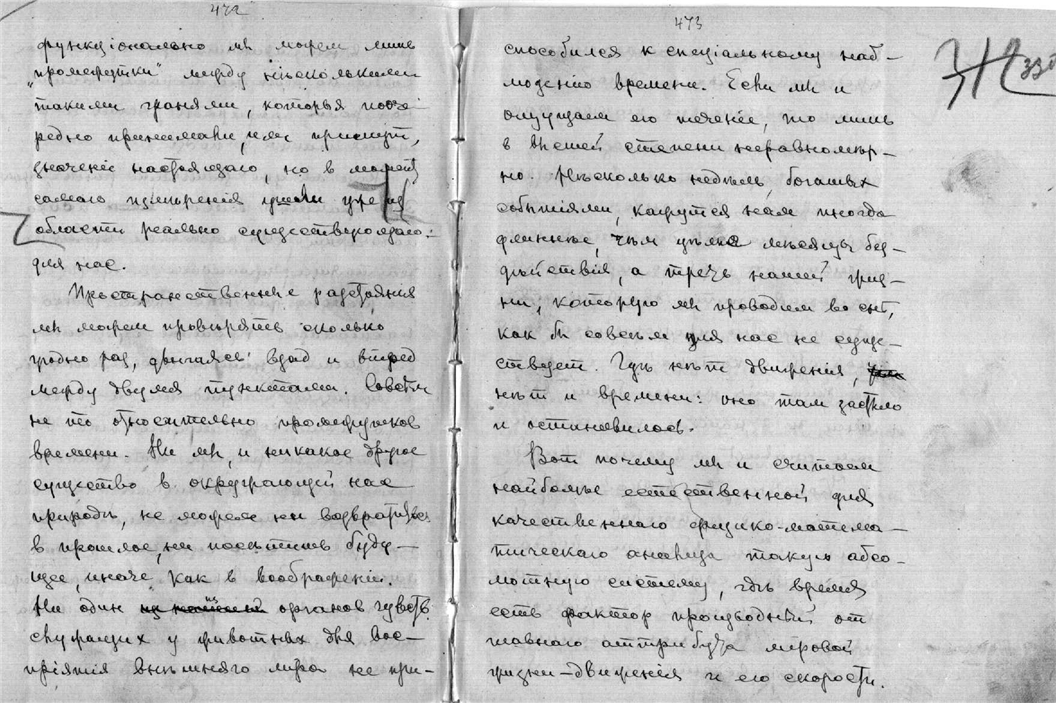 472
функціонально мы можем лишь
„промежутки" между нѣсколькими
такими гранями, которыя пооче-
редно принимали, или примут,
значеніе настоящаго, но в момент
самаго измѣренія ушли уже из
области реально существующаго
для нас.
Пространственныя разстоянія
мы можем провѣрять сколько
угодно раз, двигаясь взад и вперед
между двумя пунктами. Совсѣм
не то относительно промежутков
времени. Ни мы, и никакое другое
существо в окружающей нас
природѣ, не можем ни возвратиться
в прошлое, ни посѣтить буду-
щее, иначе, как в воображеніи.
Ни один из органов чувств,
служащих у животных для вос-
пріятія внѣшняго міра не при-
473
способился к спеціальному наб-
людению времени. Если мы и
ощущаем его теченіе, то лишь
в высшей степени неравномѣр-
но. Нѣсколько недѣль, богатых
событіями, кажутся нам иногда
длиннѣе, чѣм цѣлые мѣсяцы без-
дѣйствія, а треть нашей жиз-
ни, которую мы проводим во снѣ,
как бы совсѣм для нас не суще-
ствует. Гдѣ нѣт движенія,
нѣт и времени: оно там застыло
и остановилось.
Вот почему мы и считаем
наиболѣе естественной для
качественнаго физико-матема-
тическаго анализа такую абсо-
лютную систему, гдѣ время
есть фактор производный от
главнаго аттрибута міровой
жизни—движенія и его скорости.